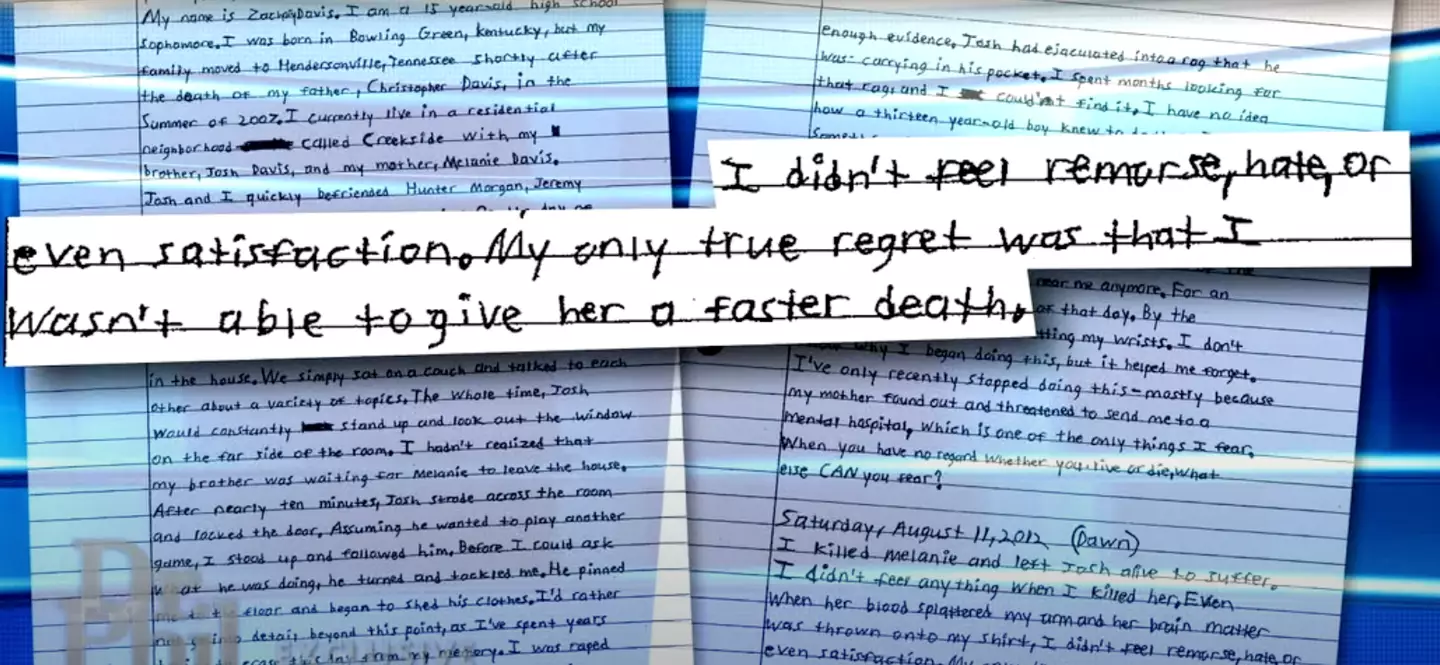 My name is Zachary Davis. I am a 15 year-old high school
sophomore. I was born in Bowling Green, Kentucky, but my
family moved to Hendersonville, Tennessee shortly after
the death of my father, Christopher Davis, in the
Summer of 2007. I currently live in a residential
neighborhood called Creekside with my
brother, Josh Davis, and my mother, Melanie Davis.
Josh and I quickly befriended Hunter Morgan, Jeremy
enough evidence. Josh had ejaculated into a rag that he
was carrying in his pocket. I spent months looking for
that rag, and I couldn't find it. I have no idea
how a thirteen year-old boy knew to
I didn't feel remorse, hate, or
even satisfaction. My only true regret was that I
wasn't able to give her a faster death.
in the house. We simply sat on a couch and talked to each
other about a variety of topics. The whole time, Josh
would constantly stand up and look out the window
on the far side of the room. I hadn't realized that
my brother was waiting for Melanie to leave the house.
After nearly ten minutes, Josh strode across the room
and locked the door. Assuming he wanted to play another
game, I stood up and followed him. Before I could ask
what he was doing, he turned and tackled me. He pinned
me to the floor and began to shed his clothes. I'd rather
not go into detail beyond this point, as I've spent years
my memory. I was raped
near me anymore. For an
that day. By the
my wrists. I don't
why I began doing this, but it helped me forget.
I've only recently stopped doing this - mostly because
my mother found out and threatened to send me to a
mental hospital, which is one of the only things I fear.
When you have no regard whether you live or die, what
else CAN you fear?
Saturday, August 11, 2012 (Dawn)
I killed Melanie and left Josh alive to suffer.
I didn't feel anything when I killed her. Even
when her blood splattered my arm and her brain matter
was thrown onto my shirt, I didn't feel remorse, hate, or
even satisfaction. My